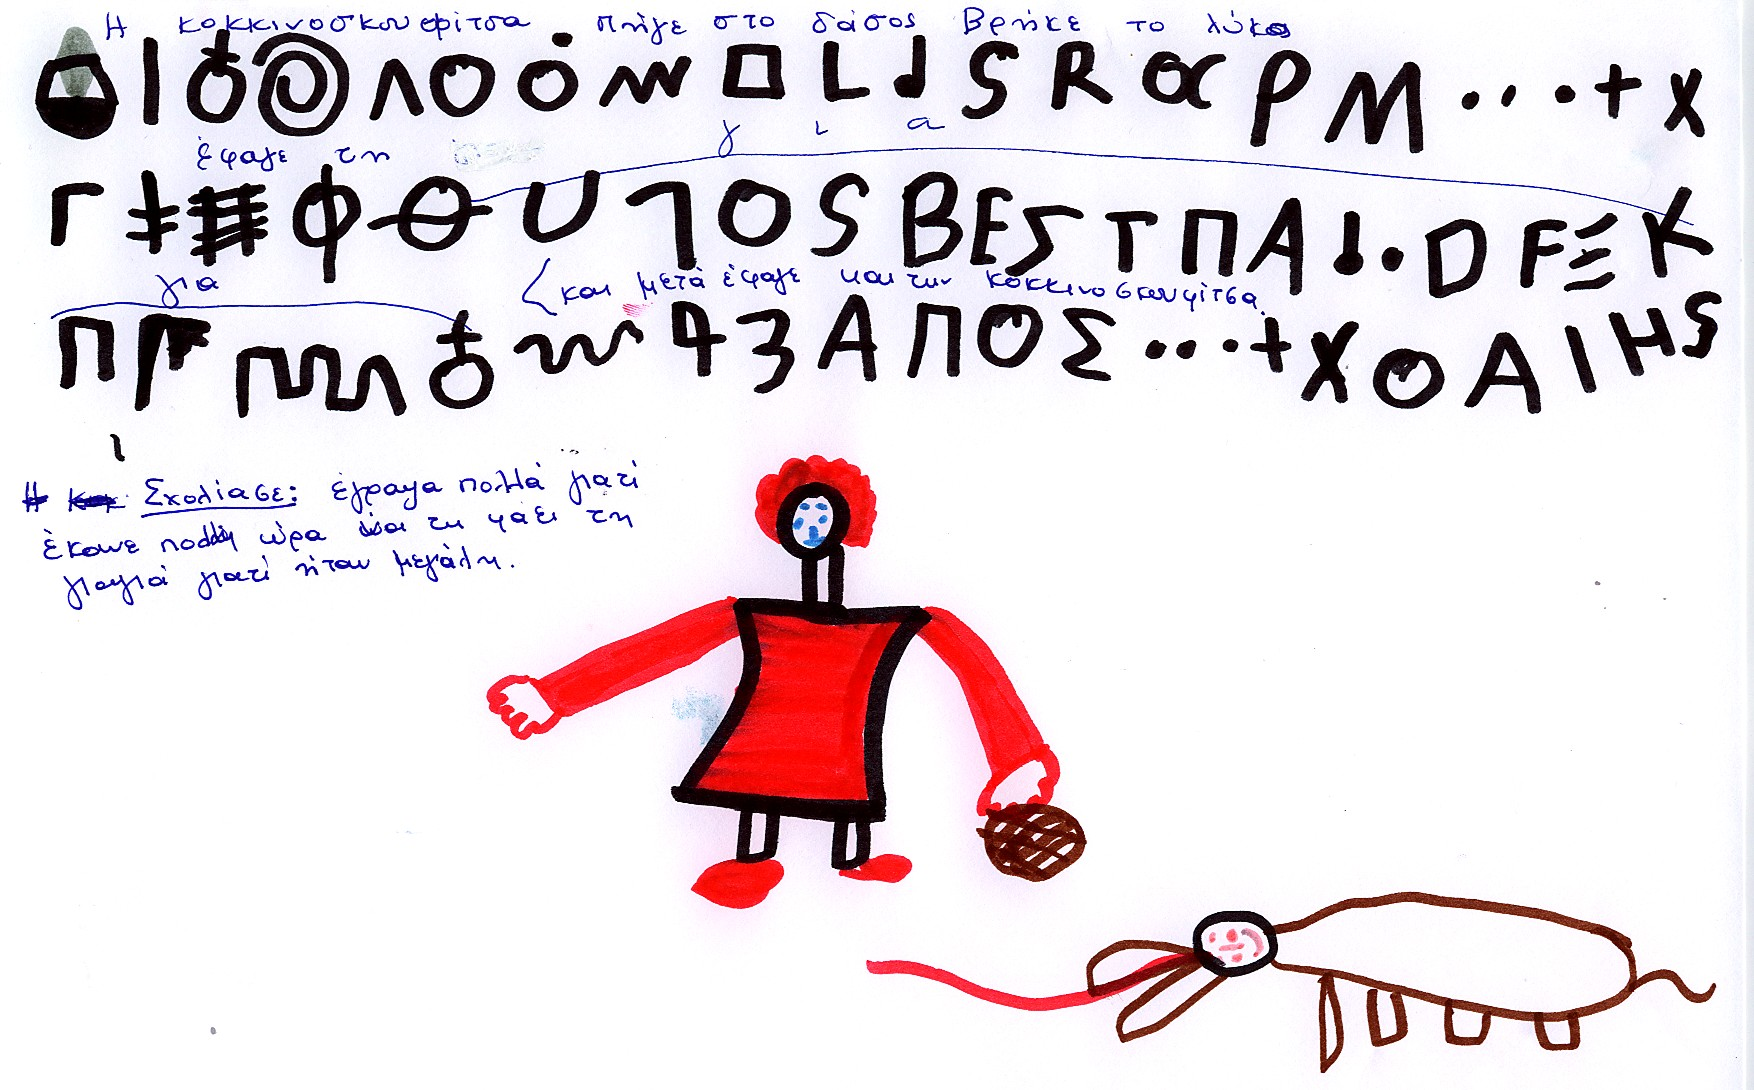 Η κοκκινοσκουφίτσα πήγε στο δάσος Βρήκε το λύκο
Λ Ο L S R α Ρ Μ . . . + Χ
έφαγε τη γ ι α
Γ Φ Θ U Ο S Β Ε Σ Τ Π Α D F Ξ Κ
για και μετά έφαγε και την κοκκινοσκουφίτσα.
Π 3 Α Π Ο Σ . . . + Χ Ο Α Ι Η S
Σχολίασε: έγραψα πολλά γιατί
έκανε πολλή ώρα να τη φάει τη
γιαγιά γιατί ήταν μεγάλη.